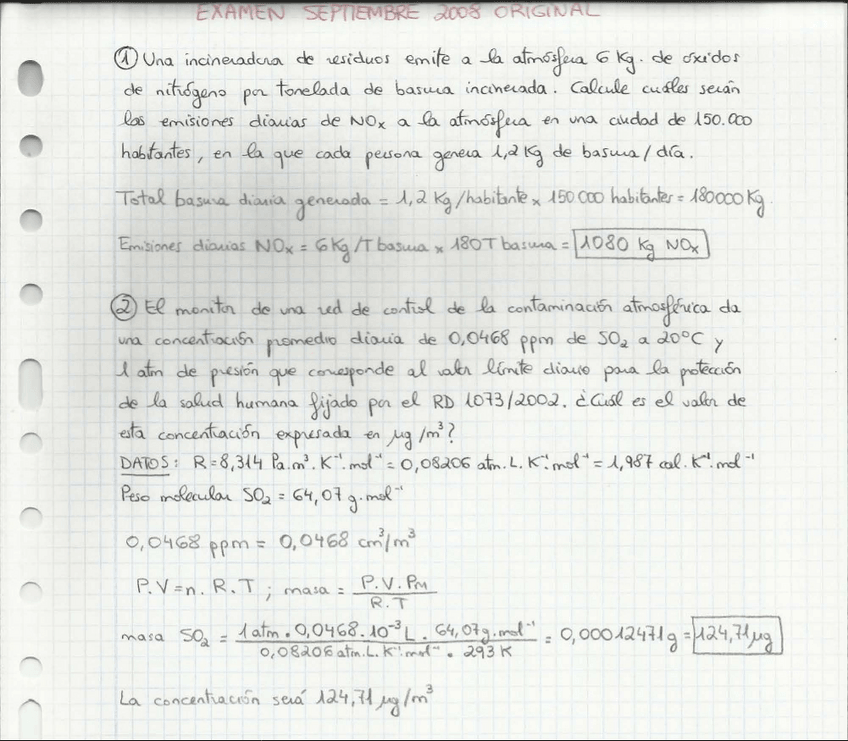 EXAMEN SEPTIEMBRE 2008 ORIGINAL
① Una incineradora de residuos emite a la atmósfera 6 Kg. de óxidos
de nitrógeno por tonelada de basura incinerada. Calcule cuáles serán
las emisiones diarias de NOx a la atmósfera en una ciudad de 150.000
habitantes, en la que cada persona genera 1,2 Kg de basura/día.
Total basura diaria generada = 1,2 Kg/habitante x 150.000 habitantes = 180000 Kg.
Emisiones diarias NOx = 6 Kg/T basura x 180 T basura = 1080 Kg NOx
② El monitor de una red de control de la contaminación atmosférica da
una concentración promedio diaria de 0,0468 ppm de SO₂ a 20°C y
1 atm de presión que corresponde al valor límite diario para la protección
de la salud humana fijado por el RD 1073/2002. ¿Cuál es el valor de
esta concentración expresada en μg/m³?
DATOS: R = 8,314 Pa.m³.K⁻¹.mol⁻¹ = 0,08206 atm.L.K⁻¹.mol⁻¹ = 1,987 cal.K⁻¹.mol⁻¹
Peso molecular SO₂ = 64,07 g.mol⁻¹
0,0468 ppm = 0,0468 cm³/m³
P.V = n.R.T ; masa = P.V.Pm / R.T
masa SO₂ = 1 atm . 0,0468.10⁻³ L . 64,07 g.mol⁻¹ / 0,08206 atm.L.K⁻¹.mol⁻¹ . 293 K = 0,00012471 g = 124,71 μg
La concentración será 124,71 μg/m³